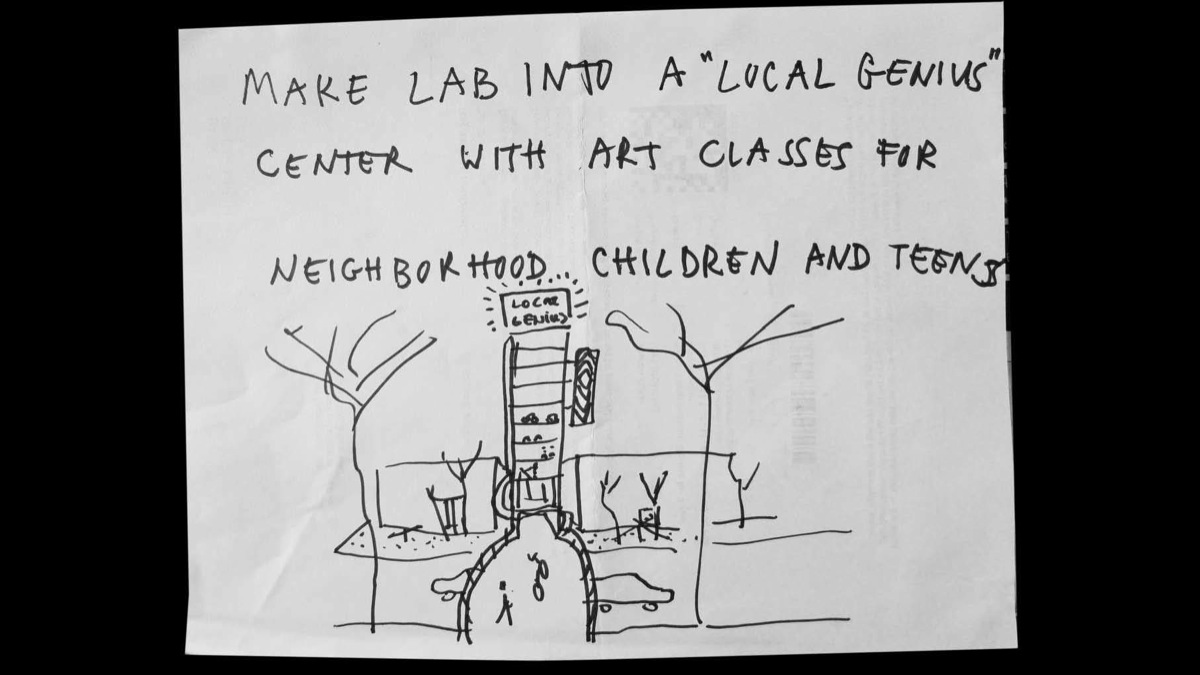 MAKE LAB INTO A "LOCAL GENIUS"
CENTER WITH ART CLASSES FOR
NEIGHBORHOOD... CHILDREN AND TEENS
LOCAL
GENIUS